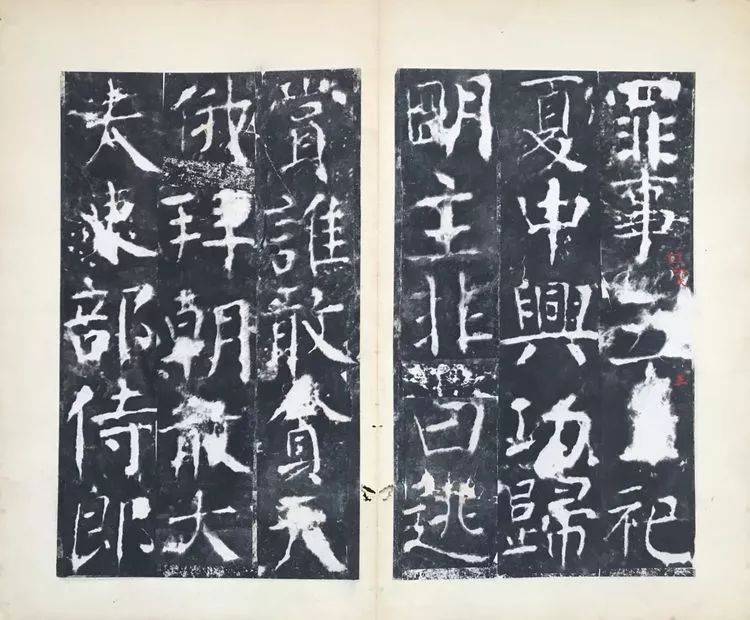 罪事祀
夏中興功歸
明主非曰逃
賞誰敢貪天
俄拜朝散大
夫吏部侍郎